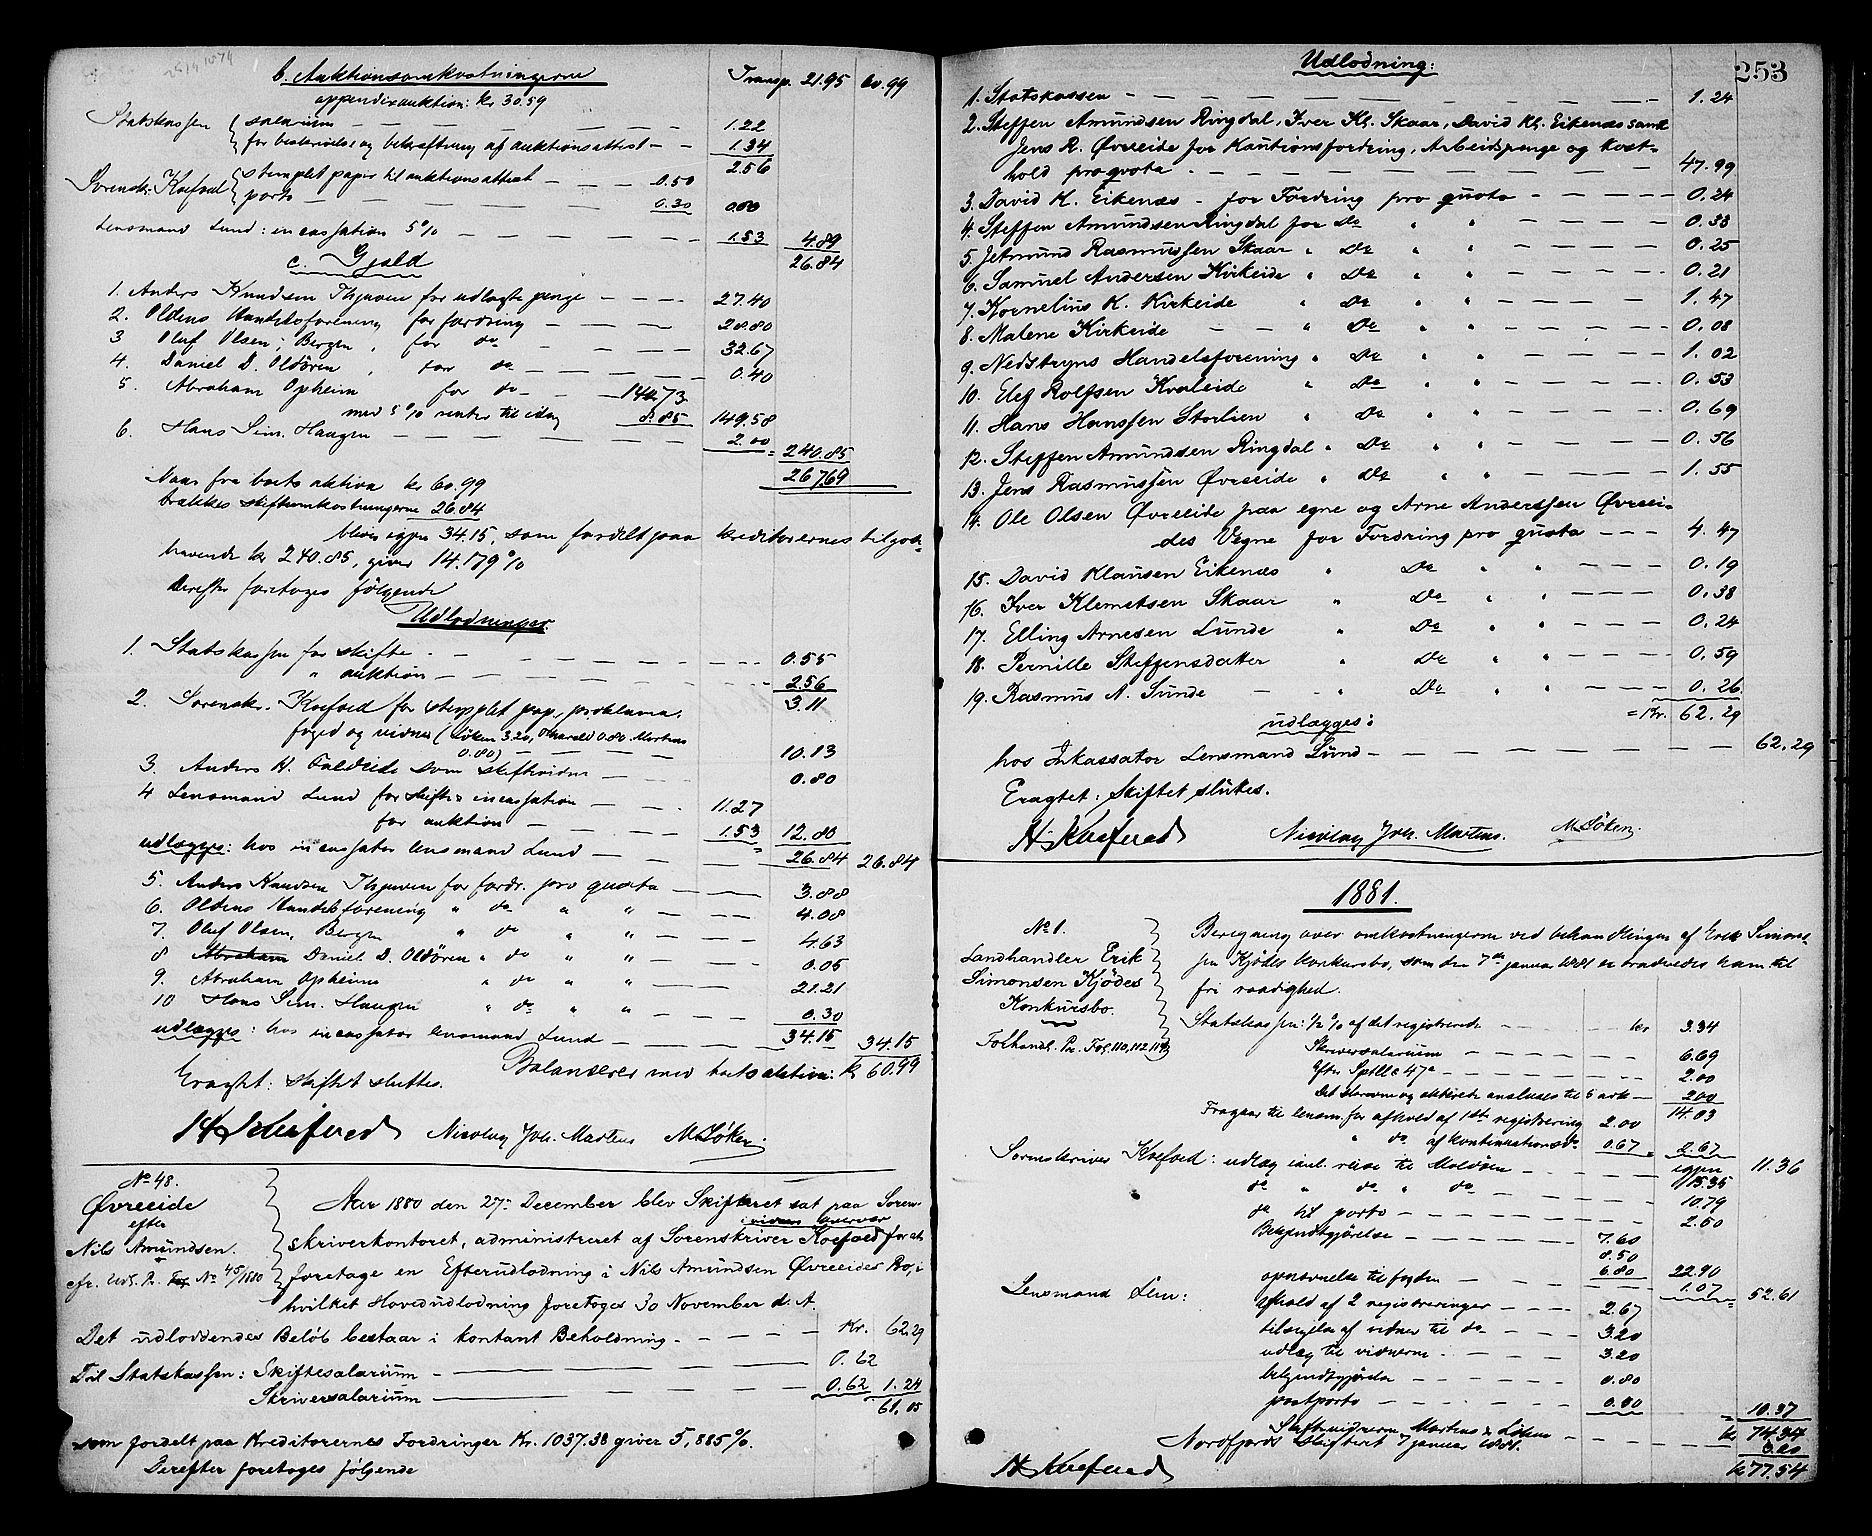 b. Auktionsomkostningerne Transp. 21.95 60.99
appendixauktion: kr 30.59
Statskassen salarium 1.22
for beskrivelse og bekræftning af auktionsattest 1.34
2.56
Sorenskr. Koefoed stemplet papir til auktionsattest 0.50
porto 0.30 0.80
Lensmand Lund: incassation 5% 1.53 4.89
c. Gjæld 26.84
1. Anders Knudsen Thjuven for udlagte penge 27.40
2. Oldens Handelsforening for fordring 28.80
3 Oluf Olsen, Bergen, for do 32.67
4. Daniel D. Oldören, for do 0.40
5. Abraham Opheim for do 140.73
med 5% renter til idag 8.85 149.58
6. Hans Sim. Haugen 2.00
240.85
267.69
Naar fra boets aktiva kr 60.99
trækkes skifteomkostningerne 26.84
bliver igjen 34.15, som fordelt paa kreditorernes tilgode-
havende kr 240.85, giver 14.179%
Derefter foretages følgende
Udlodninger.
1. Statskassen for skifte 0.55
" auktion 2.56
3.11
2. Sorenskr. Koefoed for stemplet pap., proklama,
foged og vidner (Löken 3.20, Maurseth 0.80 Martens
0.80) 10.13
3. Anders H. Faldeide som skiftevidne 0.80
4 Lensmand Lund for skifte incassation 11.27
for auktion 1.53 12.80
udlægges: hos incassator lensmand Lund 26.84 26.84
5. Anders Knudsen Thjuven for fordr. pro quota 3.88
6. Oldens Handelsforening " do " " 4.08
7. Oluf Olsen, Bergen " do " " 4.63
8 Abraham Daniel D. Oldören " do " " 0.05
9. Abraham Opheim " do " " 21.21
10 Hans Sim. Haugen " do " " 0.30
udlægges: hos incassator lensmand Lund 34.15 34.15
Balanserer med boets aktiva: kr 60.99
Eragtet: skiftet sluttes.
H Koefoed Nicolay Joh. Martens M Löken.
No 48.
Øvreeide
efter
Nils Amundsen.
cfr. Udl. Pr. No 45/1880
Aar 1880 den 27de December blev Skifteret sat paa Soren-
skriverkontoret, administreret af Sorenskriver Koefoed for at
foretage en Efterudlodning i Nils Amundsen Øvreeides Bo, i
hvilket Hovedudlodning foretoges 30 November d. A.
Det udloddendes Beløb bestaar i kontant Beholdning Kr. 62.29
Til Statskassen: Skiftesalarium 0.62
Skriversalarium 0.62 1.24
61.05
som fordelt paa Kreditorernes Fordringer Kr. 1037.38 giver 5,885%.
Derefter foretages følgende
253
Udlodning:
1. Statskassen 1.24
2. Steffen Amundsen Ringdal, Iver Kl. Skaar, David Kl. Eikenæs samt
Jens R. Øvreeide for Kautionsfordring, Arbeidspenge og Kost-
hold pro quota 47.99
3. David K. Eikenæs - for Fordring pro quota 0.24
4. Steffen Amundsen Ringdal for Do " " 0.38
5. Jetmund Rasmussen Skaar " Do " " 0.25
6. Samuel Andersen Kirkeide " Do " " 0.21
7. Kornelius K. Kirkeide " Do " " 1.47
8. Malene Kirkeide " Do " " 0.08
9. Nedstryns Handelsforening " Do " " 1.02
10. Elef Rolfsen Kvaleide " Do " " 0.53
11. Hans Hanssen Storlien " Do " " 0.69
12. Steffen Amundsen Ringdal " Do " " 0.56
13. Jens Rasmussen Øvreeide " Do " " 1.55
14. Ole Olsen Øvreeide paa egne og Arne Anderssen Øvreei-
des Vegne for Fordring pro quota 4.47
15. David Klausen Eikenæs " Do " " 0.19
16. Iver Klemetsen Skaar " Do " " 0.38
17. Elling Arnesen Lunde " Do " " 0.24
18. Pernille Steffensdatter " Do " " 0.59
19. Rasmus A. Sunde " Do " " 0.26
udlægges: = Kr. 62.29
hos Inkassator Lensmand Lund 62.29
Eragtet: Skiftet sluttes.
H. Koefoed Nicolay Joh. Martens. M Löken.
1881.
No 1.
Landhandler Erik
Simonsen Kjödes
Konkursbo.
Folhandl. Pr. Fol. 110, 112, 119
Beregning over omkostningerne ved behandlingen af Erik Simon-
sen Kjödes konkursbo, som den 7de januar 1881 er extraderet ham til
fri raadighed.
Statskassen: ½% af det registrerede kr 3.34
Skriversalarium 6.69
efter Sptll § 47a 2.00
2.00
14.03
Fragaar til lensm. for afhold af 1ste registrering 2.00
" do af kontinuationsdo 0.67 2.67
igjen 11.36
Sorenskriver Koefoed: udlæg i anl. reise til Moldöen 15.35
do " do " do 10.79
do til porto 2.50
Bekjendtgjörelse 7.60
8.50
6.80 22.90
opnævnelse til fogden 1.07 52.61
Lensmand Lem: afhold af 2 registreringer 2.67
tilsigelse af vidner til do 3.20
udlæg til vidnerne 3.20
bekjendtgjørelse 0.80
postporto 0.80 10.37
kr 74.34
Skiftevidnerne Martens & Löken 3.20
Nordfjords Skifteret 7 januar 1881. kr 77.54
H Koefoed